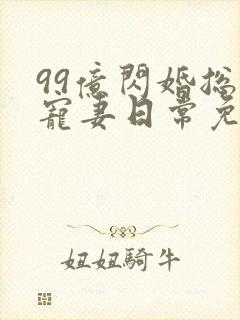 99億閃婚总
寵妻日常免
妞妞騎牛